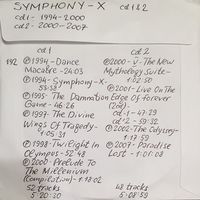 SYMPHONY - X cd 1 & 2
cd1 - 1994-2000
cd2 - 2000-2007
cd1
192 ℗1994-Dance
Macabre - 24:03
℗1994-Symphony-X-
53:38
℗1995-The Damnation
Game - 46:26
℗1997-The Divine
Wings Of Tragedy-
1:05:31
℗1998-Twilight In
Olympus-52:48
℗2000-Prelude To
The Millenium
(Compilation)-1:18:02
52 tracks
5:20:30
cd2
℗2000-V-The New
Mythology Suite-
1:02:50
℗2001-Live On The
Edge Of Forever
(2cd)-
cd·1-47:29
cd·2-59:32
℗2002-The Odyssey-
1:17:59
℗2007-Paradise
Lost-1:01:08
48 tracks
5:08:59